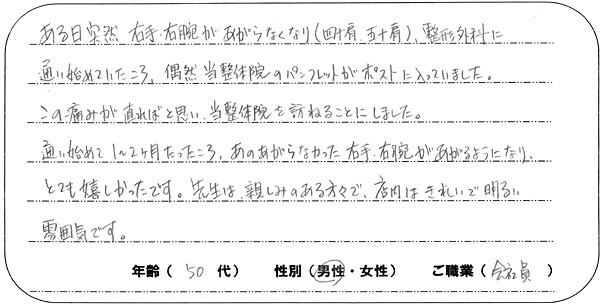 ある日突然 右手・右腕があがらなくなり(四十肩、五十肩)、整形外科に
通い始めていたころ、偶然 当整体院のパンフレットがポストに入っていました。
この痛みが直ればと思い、当整体院を訪ねることにしました。
通い始めて1~2ヶ月たったころ、あのあがらなかった右手・右腕があがるようになり、
とても嬉しかったです。先生は、親しみのある方々で、店内はきれいで明るい
雰囲気です。
年齢( 50 代) 性別(男性・女性) ご職業( 会社員 )